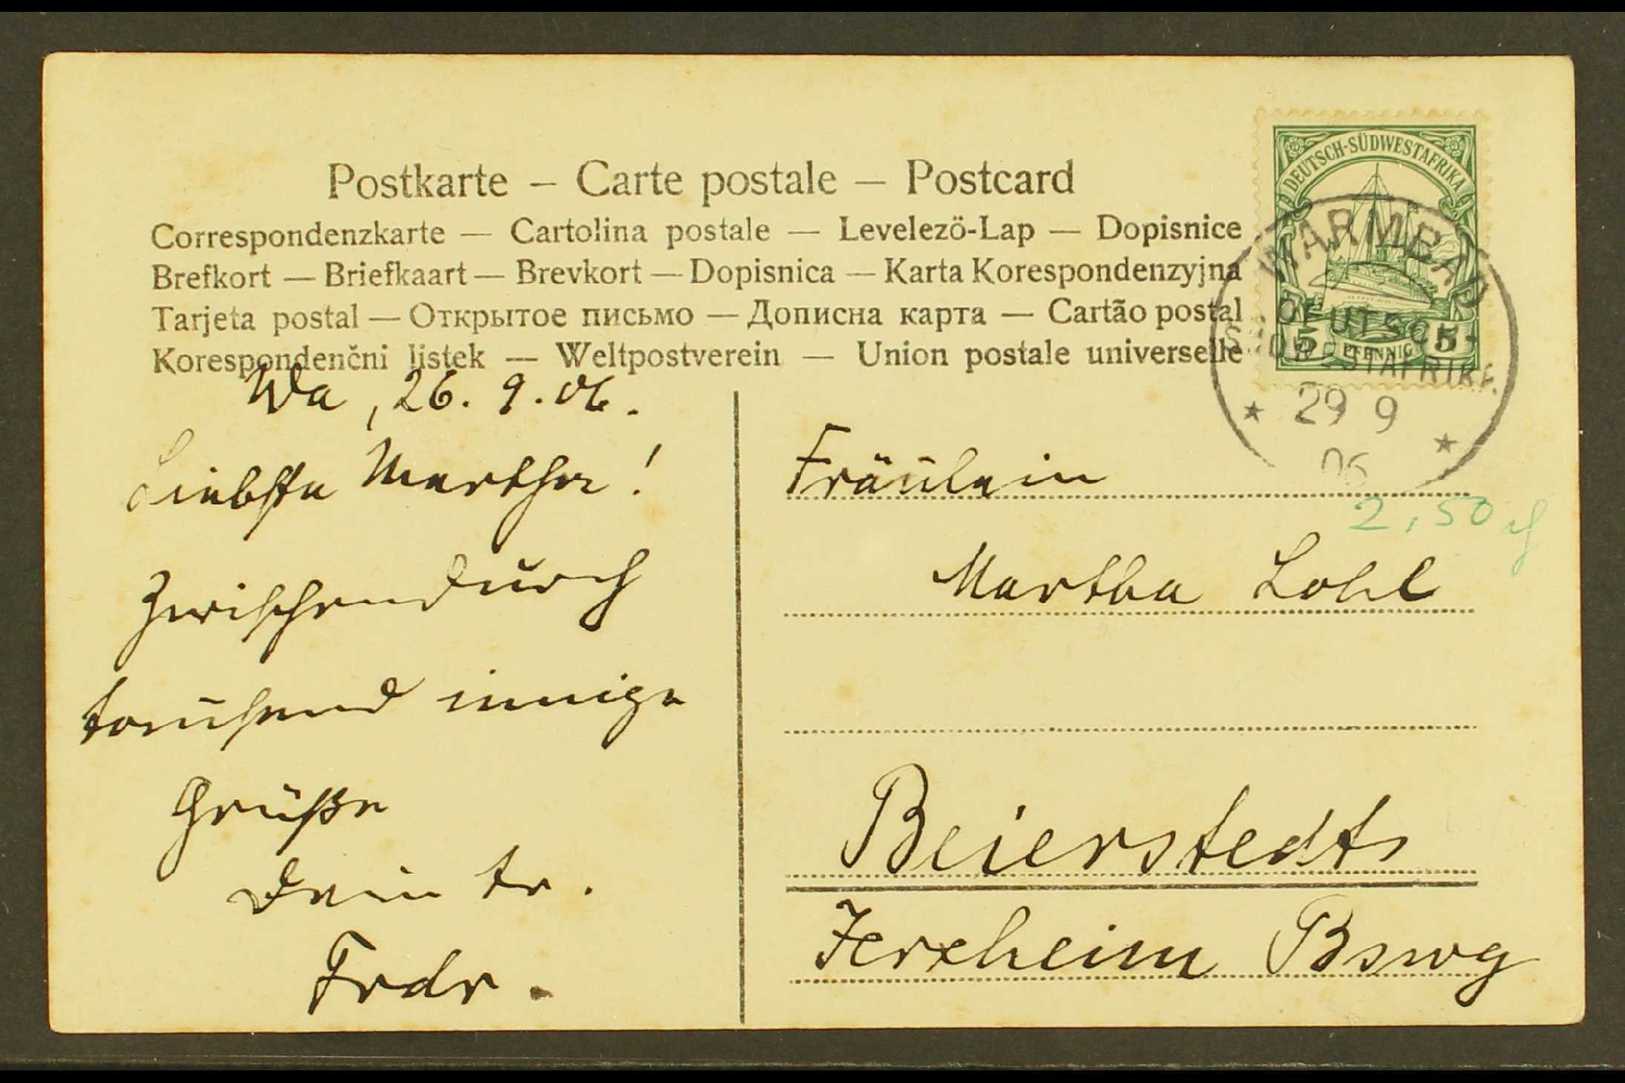 Postkarte – Carte postale – Postcard
Correspondenzkarte — Cartolina postale — Levelezö-Lap — Dopisnice
Brefkort — Briefkaart — Brevkort — Dopisnica — Karta Korespondenzyjna
Tarjeta postal — Открытое письмо — Дописна карта — Cartão postal
Korespondenčni listek — Weltpostverein — Union postale universelle
DEUTSCH-SÜDWESTAFRIKA
5 PFENNIG 5
WARMBAD
DEUTSCH-
SÜDWESTAFRIKA
29 9
06
2,50
Wa, 26. 9. 06.
Liebste Martha!
Zwischendurch
tausend innige
Grüße
Dein tr.
Frdr.
Fräulein
Martha Lohl
Beierstedt
Jerxheim Bswg